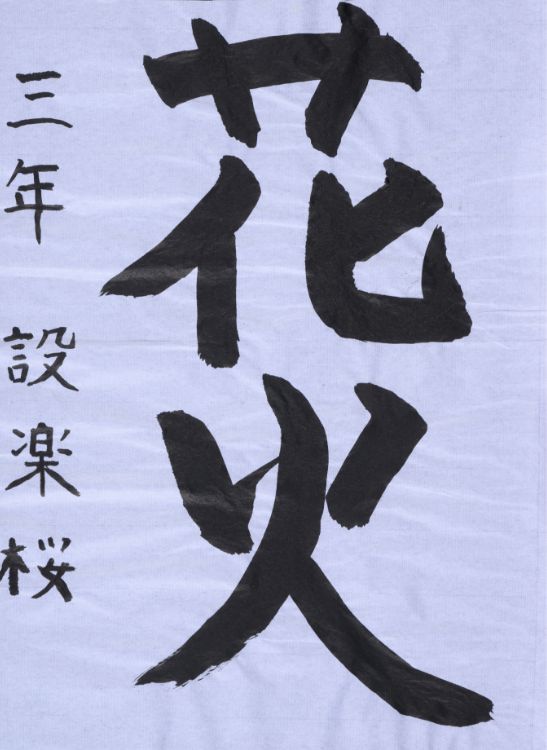 花火
三年 設楽桜